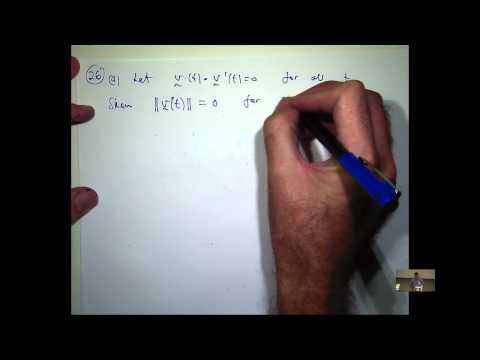 26) (a) Let v(t) • v'(t) = 0 for all t
Show ||v(t)|| = 0 for